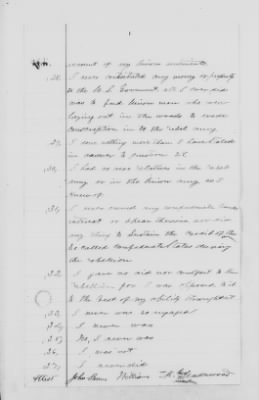 account of my Union sentiments
28. I never contributed any money or property
to the U.S. Government, all I ever did
was to feed Union men who were
laying out in the woods to evade
conscription in to the rebel army.
29. I done nothing more than I have stated
in answer to question 28.
30. I had no near relatives in the rebel
army or in the Union army as I
know of.
31. I never owned any confederate bonds
interest or share therein nor did
any thing to sustain the credit of the
so called confederate States during
the rebellion
32. I gave no aid nor comfort to the
rebellion for I was opposed to it
to the best of my ability throughout
33. I never was so engaged
34. I never was
35. No, I never was
36. I was not
37. I never did
Attest John William